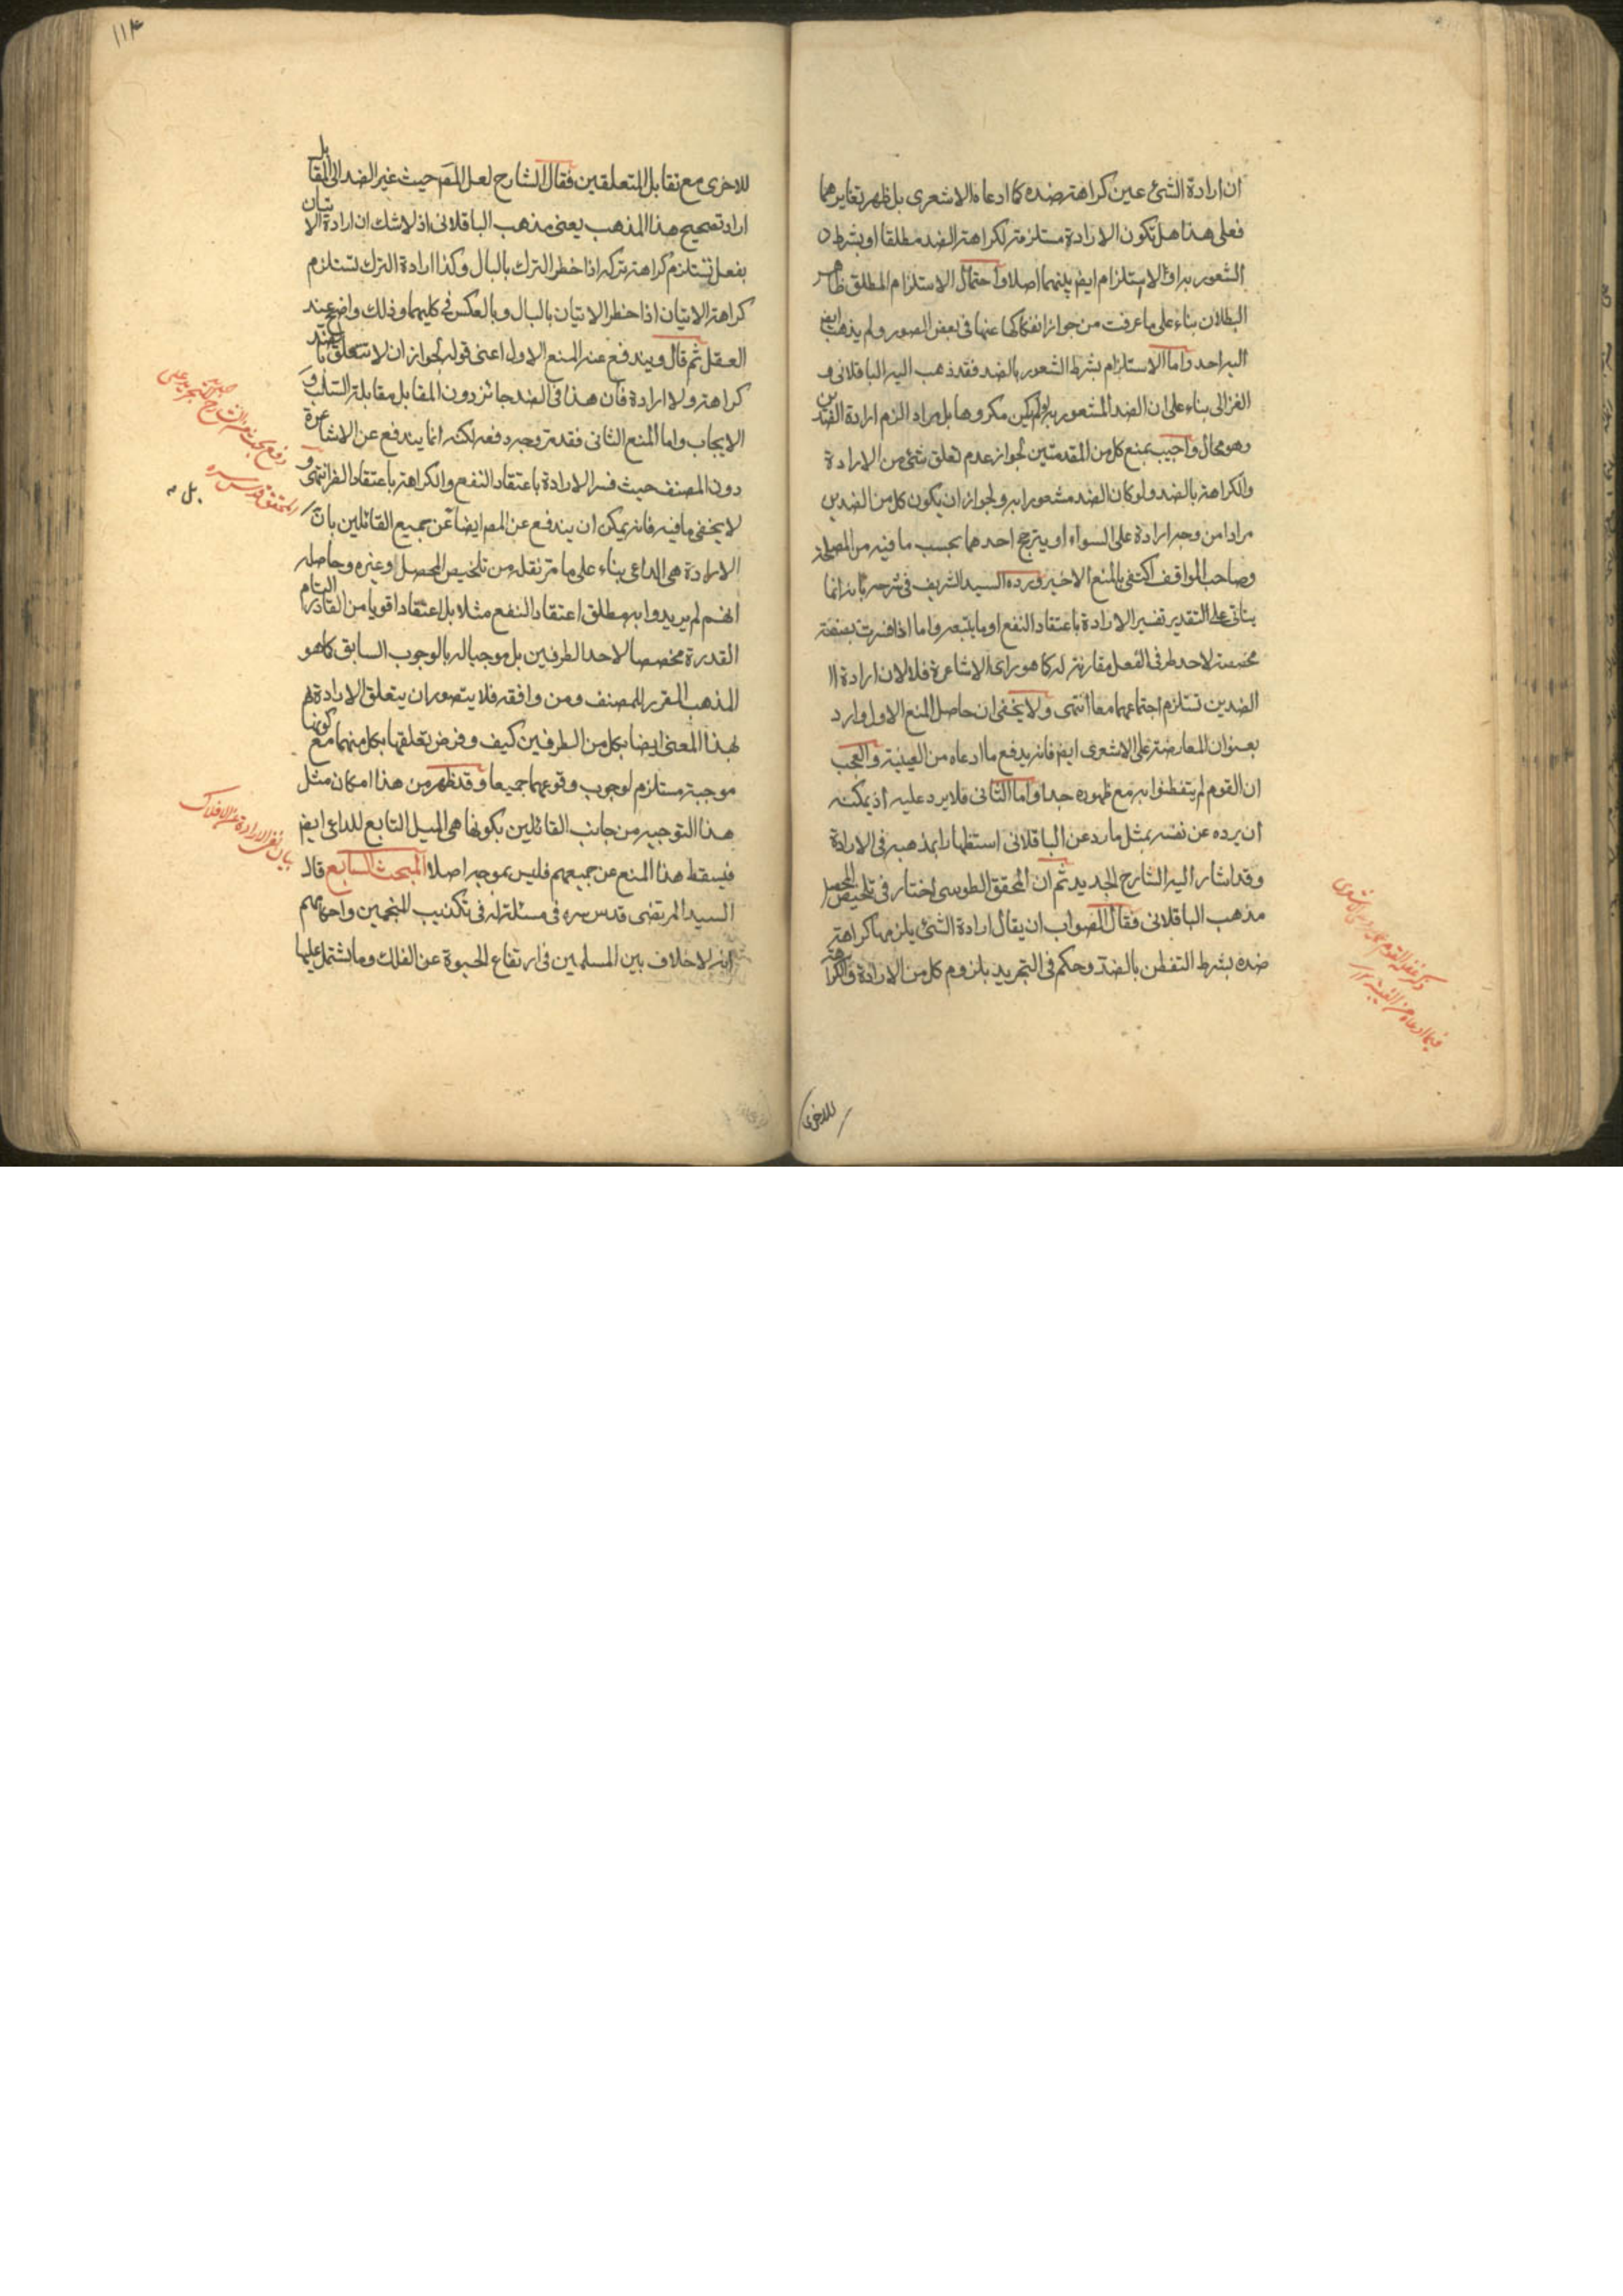 ان ارادة الشئ عين كراهة ضده كما ادعاه الاشعرى بل ظهر تغايرهما
فعلى هذا هل تكون الارادة مستلزمة لكراهة الضد مطلقا او بشرط
الشعور به او لا استلزام ايض بينهما اصلا و احتمال الاستلزام المطلق ظاهر
البطلان بناء على ما عرفت من جواز انفكاكها عنها فى بعض الصور و لم يذهب ايض
اليه احد و اما الاستلزام بشرط الشعور بالضد فقد ذهب اليه الباقلانى و
الغزالى بناء على ان الضد المشعور به لو لم يكن مكروها بل مراد الزم ارادة الضدين
وهو محال و اجيب بمنع كل من المقدمتين لجواز عدم تعلق شئ من الارادة
والكراهة بالضد و لو كان الضد مشعورا به و لجواز ان يكون كل من الضدين
مرادا من وجه ارادة على السواء او يترجح احدهما بحسب ما فيه من المصلحة
وصاحب المواقف اكتفى بالمنع الاخير و رده السيد الشريف فى شرحه بانه انما
يتاتى على التقدير تفسير الارادة باعتقاد النفع او ما يتبعه و اما اذا فسرت بصفة
مخصصة لاحد طرفى الفعل مقارنة له كما هو راى الاشاعرة فلا لان ارادة
الضدين تستلزم اجتماعهما معا انتهى و لا يخفى ان حاصل المنع الاول وارد
بعنوان المعارضة على الاشعرى ايض فانه يدفع ما ادعاه من العينية و العجب
ان القوم لم يتفطنوا به مع ظهوره جدا و اما الثانى فلا يرد عليه اذ يمكنه
ان يرده عن نفسه بمثل ما رد عن الباقلانى استظهارا بمذهبه فى الارادة
و قد اشار اليه الشارح الجديد ثم ان المحقق الطوسى اختار فى تلخيص المحصل
مذهب الباقلانى فقال الصواب ان يقال ارادة الشئ يلزمها كراهة
ضده بشرط التفطن بالضد و حكم فى التجريد بلزوم كل من الارادة و الكراهة
ذكر غفلة القوم
فيما ادعاه من العينية
للاخرى
١١٤
للاخرى مع تقابل المتعلقين فقال الشارح لعل المص حيث غير الضد الى المقابل
اراد تصحيح هذا المذهب يعنى مذهب الباقلانى اذ لا شك ان ارادة الاتيان
بفعل تستلزم كراهة تركه اذا خطر الترك بالبال و كذا ارادة الترك تستلزم
كراهة الاتيان اذا خطر الاتيان بالبال و بالعكس فى كليهما و ذلك واضح عند
العقل ثم قال و يندفع عنه المنع الاول اعنى قوله لجواز ان لا تتعلق بالضد
كراهة و لا ارادة فان هذا فى الضد جائز دون المقابل مقابلة السلب و
الايجاب و اما المنع الثانى فقد مر وجه دفعه لكنه انما يندفع عن الاشاعرة
دون المصنف حيث فسر الارادة باعتقاد النفع و الكراهة باعتقاد الضر انتهى و
لا يخفى ما فيه فانه يمكن ان يندفع عن المص ايضا عن جميع القائلين بان
الارادة هى الداعى بناء على ما مر نقله من تلخيص المحصل و غيره و حاصله
انهم لم يريدوا به مطلق اعتقاد النفع مثلا بل اعتقادا قويا من القادر التام
القدرة مخصصا لاحد الطرفين بل موجبا له بالوجوب السابق كما هو
المذهب المقرر للمصنف و من وافقه فلا يتصور ان يتعلق الارادة
بهذا المعنى ايضا بكل من الطرفين كيف و فرض تعلقها بكل منهما مع كونها
موجبة مستلزم لوجوب وقوعهما جميعا و قد ظهر من هذا امكان مثل
هذا التوجيه من جانب القائلين بكونها هى الميل التابع للداعى ايض
فيسقط هذا المنع عن جميعهم فليس بموجه اصلا المبحث السابع قال
السيد المرتضى قدس سره فى مسئلة له فى تكذيب المنجمين و احكامهم
انه لا خلاف بين المسلمين فى ارتفاع الحيوة عن الفلك و ما يشتمل عليها
المحقق قدس سره
بل
بيان نفى الارادة عن الافلاك